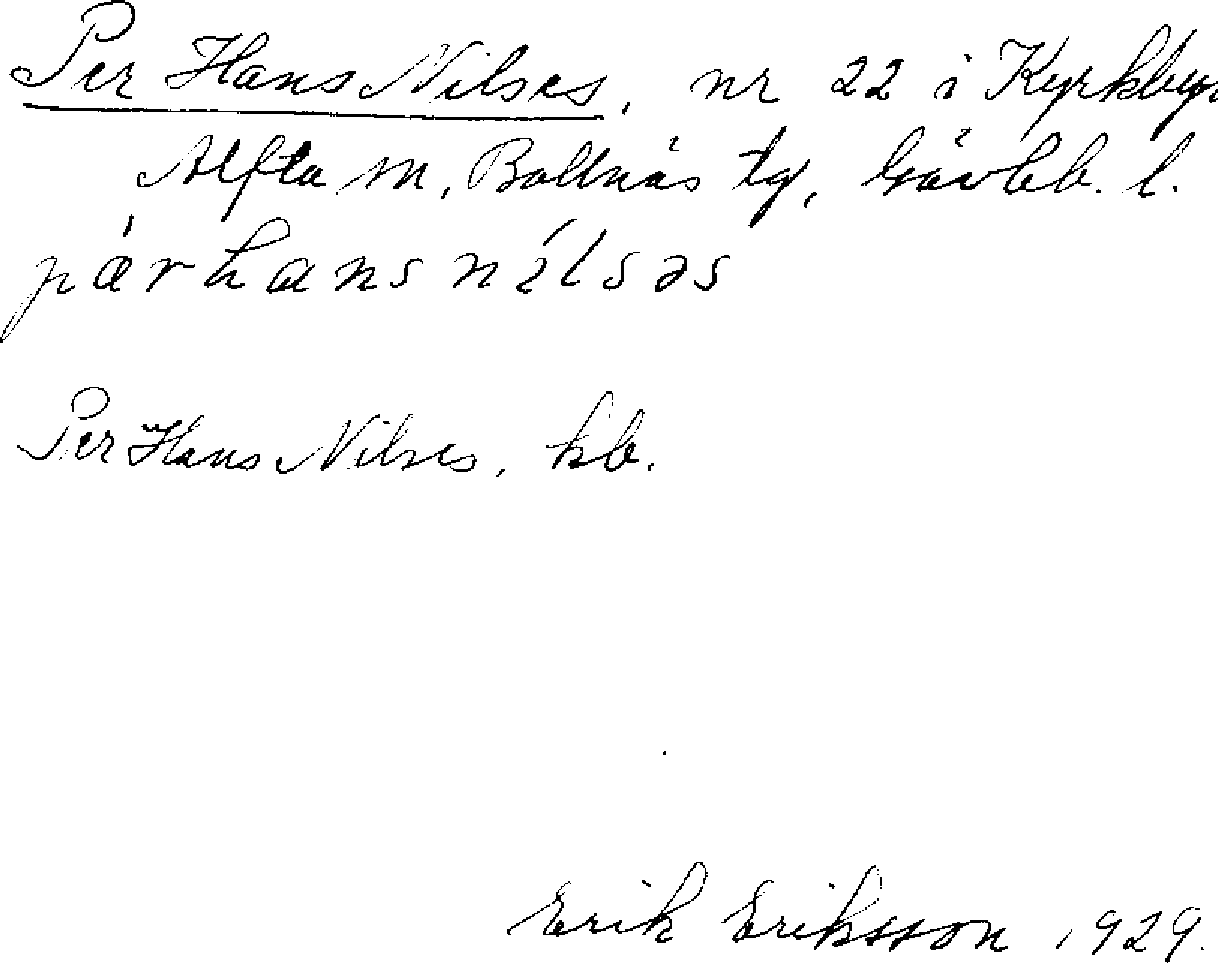 Per Hans Nilses, nr 22 i Kyrkbyn
Alfta sn, Bollnäs tg, Gävleb. l.
pǽrhans nílsəs
Per Hans Nilses, kb.
Erik Eriksson 1929.